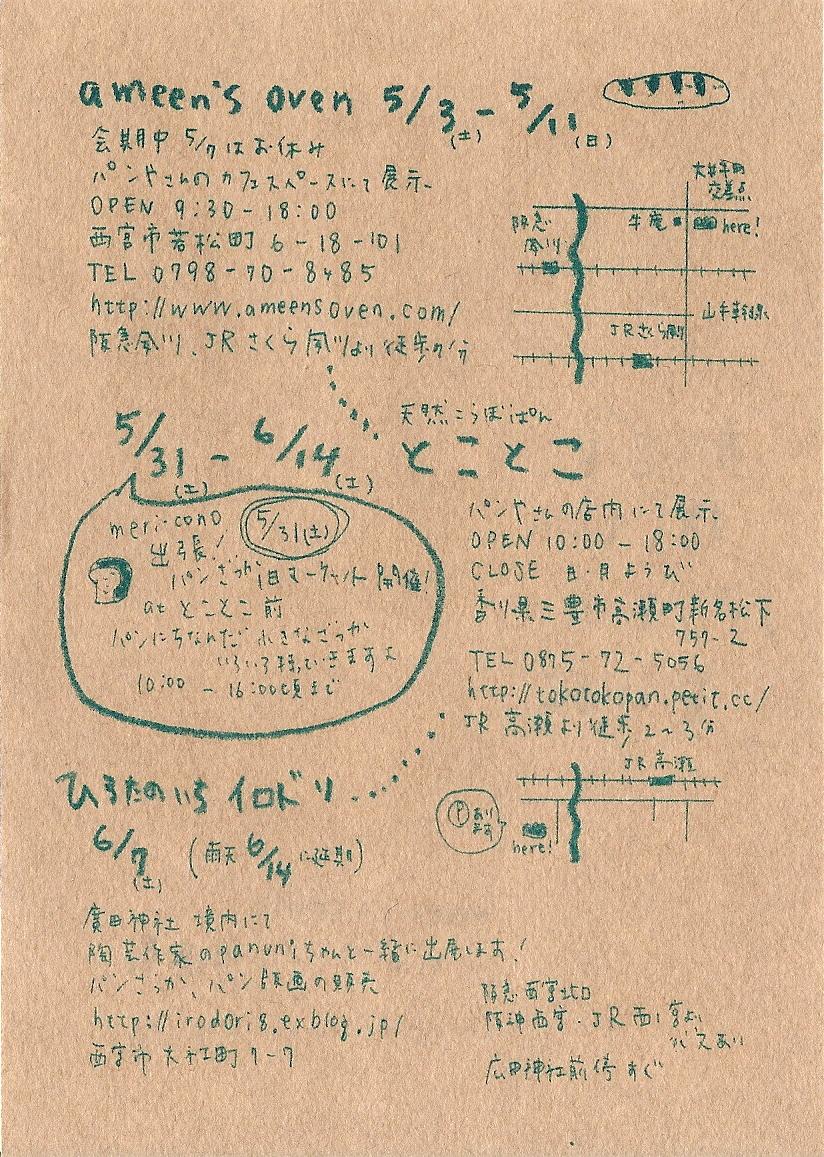 ameen's oven 5/3(土) - 5/11(日)
会期中 5/7はお休み
パンやさんのカフェスペースにて展示
OPEN 9:30-18:00
西宮市若松町 6-18-101
TEL 0798-70-8485
http://www.ameensoven.com/
阪急夙川、JRさくら夙川より徒歩7分
大井手町
交差点
阪急
夙川
牛庵
here!
山手幹線
JRさくら夙川
天然こうぼぱん
とことこ
5/31(土) - 6/14(土)
meri-cono
出張!
5/31(土)
パンざっか1日マーケット開催!
at とことこ前
パンにちなんだ小さなざっか
いろいろ持っていきますよ
10:00 - 16:00頃まで
パンやさんの店内にて展示
OPEN 10:00 - 18:00
CLOSE 日・月ようび
香川県三豊市高瀬町新名松下
757-2
TEL 0875-72-5056
http://tokotokopan.petit.cc/
JR 高瀬より徒歩2~3分
JR高瀬
Pあり
ます
here!
ひろたのいち イロドリ
6/7(土) (雨天 6/14に延期)
廣田神社 境内にて
陶芸作家のpanuniちゃんと一緒に出展します!
パンざっか、パン版画の販売
http://irodori8.exblog.jp/
西宮市大社町7-7
阪急西宮北口
阪神西宮・JR西ノ宮より
バスあり
広田神社前停すぐ